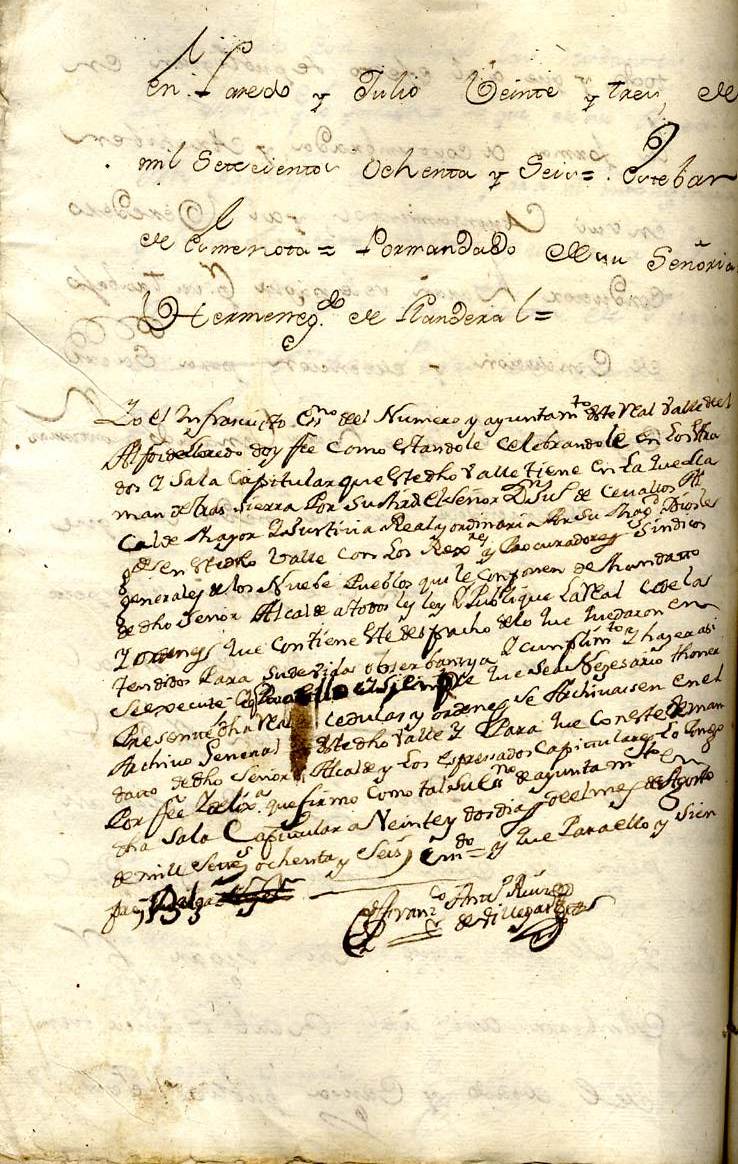 en. Laredo y Julio Veinte y tres, de
mil Setecientos Ochenta y Seis = Esteban
de Comenota = Pormandado de su Señoria
Hermeneg.do de Llanderal =
Yo el Infrascripto Esno del Numero y ayuntamto deste Real Valle de
Alfoz de lloredo doy fee Como estandole Celebrandole en Los Estra
dos y Sala Capitular que estedho Valle tiene en La que lla
man de tras Sierra Por su Mrd el Señor Dn de Cevallos Al
Calde Mayor y Justicia Real y ordinaria Por su Magd Dios le
gde en estedho Valle Con Los Rexres y Procuradores Sindicos
generales de los Nuebe Pueblos que le Componen de Mandatto
de dho Señor Alcalde a todos ley y Publique La Real Cedela
y ordenes que Contiene este despacho de lo que quedaron en
tendidos Para su devida obserbanzya y Cumplimto y hazer asi
Se execute siempre que sea Nezesario Thomar
Presente dha Real Cedulas y ordenes se Archivaisen en el
Archivo General de estedho Valle y Para que Conste de man
datto de dho Señor Alcalde y Los espresados Capitulares Lo Pongo
Por feê que firmo Como tal su Esno de ayuntamto en
dha Sala Capitular a Veinte y dos dias de el mes de Agosto
de mill Setts ochenta y Seis, Emdo = y que Para ello y Sien
Franco Anto Ruiz
de Villegas